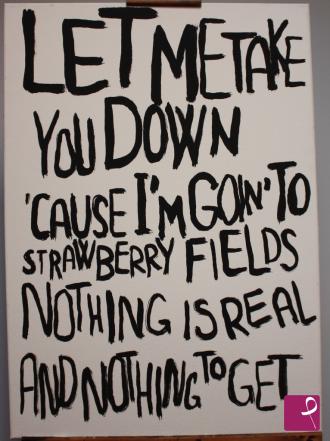 LET ME TAKE
YOU DOWN
'CAUSE I'M GOIN' TO
STRAWBERRY FIELDS
NOTHING IS REAL
AND NOTHING TO GET